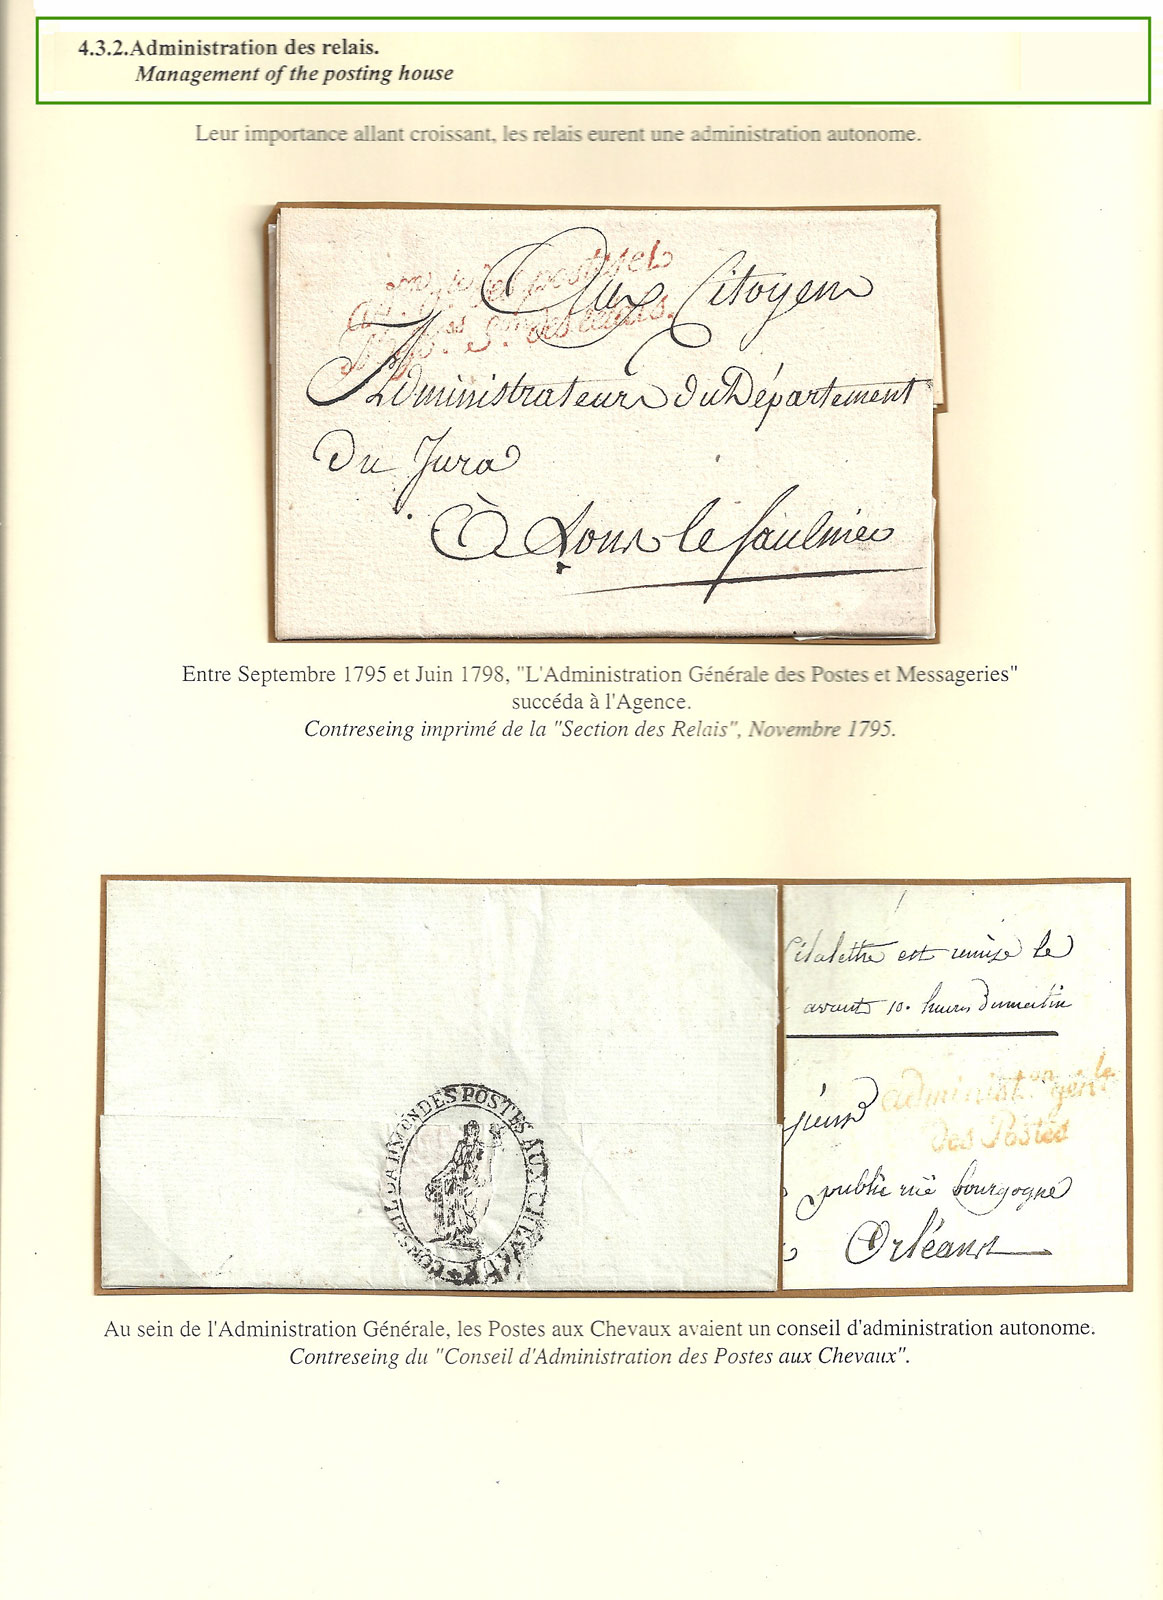 4.3.2.Administration des relais.
Management of the posting house
Leur importance allant croissant, les relais eurent une administration autonome.
Aux Citoyens
Administrateurs du Département
du Jura
À Lons le Saulnier
Entre Septembre 1795 et Juin 1798, "L'Administration Générale des Postes et Messageries"
succéda à l'Agence.
Contreseing imprimé de la "Section des Relais", Novembre 1795.
CONSEIL D'ADMON DES POSTES AUX CHEVAUX
est remise le
avant 10. heures du matin
administ.on gén.le
des Postes
public rue bourgogne
Orléans
Au sein de l'Administration Générale, les Postes aux Chevaux avaient un conseil d'administration autonome.
Contreseing du "Conseil d'Administration des Postes aux Chevaux".